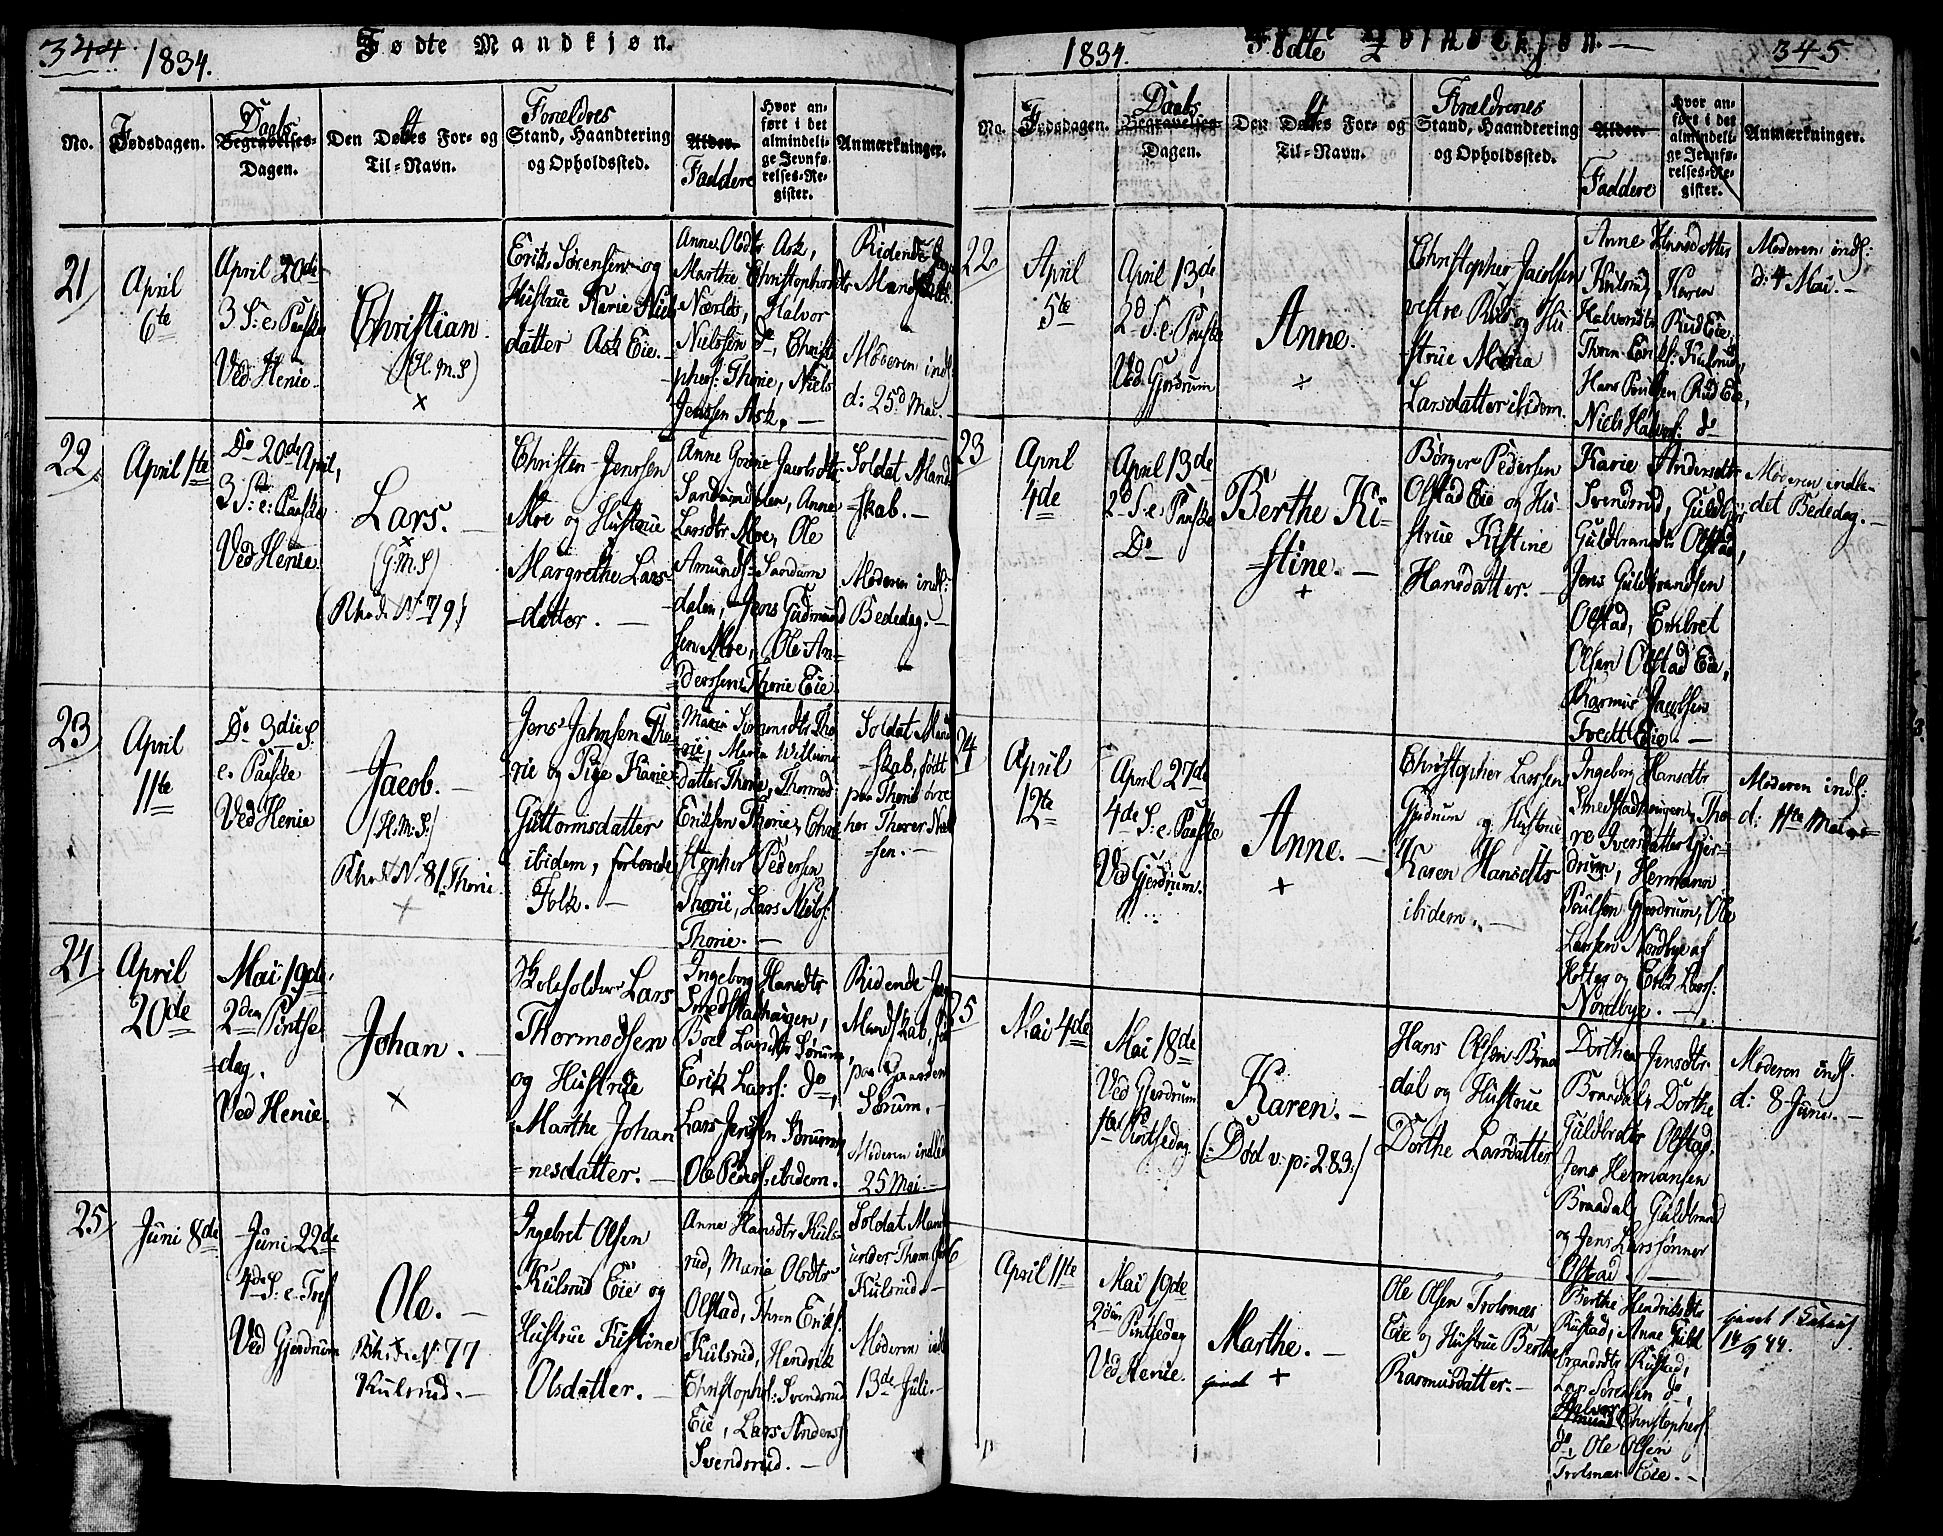 344
1834.
Fødte Mandkjøn.
No.
Fødsdagen.
Daabs
Begravelses-
Dagen.
Den Døbtes For- og
Til-Navn.
Forældres
Stand, Haandtering
og Opholdssted.
Alder.
Faddere
Hvor an-
ført i det
almindeli-
ge Jevnfø-
relses-Re-
gister.
Anmærkninger.
21
April
6te
April 20de
3 S: e. Paaske
Ved Henie.
Christian.
(H.M.S)
×
Erik Sørensen og
Hustrue Marie Niels
datter Ask Eie.
Anne Olsdtr Ask,
Marthe Christophersdtr
Nærlbs, Halvor
Nielssen do, Christo
phers: Thorie, Niels
Jenssen Ask. —
Ridende
Mandskab.
Moderen indl:
d: 25d Mai.
22
April 1te
Do 20de April,
3 S: e: Paaske
Ved Henie
Lars. —
×
(G.M.S)
(Rhod. No 79)
Christen Jenssen
Moe og Hustrue
Margrethe Lars-
datter. —
Anne Jacobsdtr
Sandumdalen, Anne
Larsdtr Moe, Ole
Amunds: Sandum
dalen, Jens Gudmund
sen Moe, Ole An-
derssen Thorie Eie
Soldat Mand-
skab. —
Moderen indl:
Bededag. —
23
April
11te
Do 3die S.
e. Paaske
Ved Henie
Jacob. —
(H.M.S.)
No 81. Thorie
×
Jens Jahnsen Tho-
rie og Pige Karie
Guttormsdatter
ibidem, forlovede
Folk. —
Maria Simensdtr Tho
rie, Maria Willums
datter Thorie, Thormod
Eriksen Thorie, Chri
stopher Pedersen
Thorie, Lars Niels:
Thorie. —
Soldat Mand
skab, født
paa Thorie øvre
hos Thorer Niel
sen. —
24
April
20de
Mai 19de
2den Pintse
dag.
Ved Henie.
Johan. —
×
Skoleholder Lars
Thormodsen
og Hustrue
Marthe Johan
nesdatter. —
Ingeborg Hansdtr
Smedstadhaugen,
Boel Larsdtr Sørum,
Erik Larss: do,
Lars Jensen Sørum,
Ole Peders: ibidem.
Ridende
Mandskab,
paa Gaarden
Sørum. —
Moderen indled
25 Mai. —
25
Juni 8de
Juni 22de
4de S: e. Tref
Ved Gjerdrum
Ole. —
No 77
Kulsrud. —
×
Ingebret Olsen
Kulsrud Eie og
Hustrue Kistine
Olsdatter. —
Anne Hansdtr Kuls-
rud, Marie Olsdtr
Olstad, Thron Eriks:
Kulsrud, Hendrik
Christophs: Svendsrud
Eie, Lars Anders:
Svendsrud. —
Soldat Mand
under Thoren
Kulsrud. —
Moderen indl
13de Juli. —
1834.
Fødte
345
No.
Fødsdagen.
Daabs
Begravelses-
Dagen.
Den Døbtes For- og
Til-Navn.
Forældrenes
Stand, Haandtering
og Opholdssted.
Alder.
Faddere
Hvor an-
ført i det
almindeli-
ge Jevnfø-
relses-Re-
gister.
Anmærkninger.
22
April
5te
April 13de
2d S. e. Paaske
Ved Gjerdrum
Anne.
×
Christopher Jacobsen
vestre Rud og Hu
strue Maria
Larsdatter ibidem.
Anne Hansdatter
Kulsrud, Karen
Halvorsdtr Rud Eie,
Thron Eriks: Kulsrud,
Hans Poulsen Rud Eie,
Niels Halvors: do
Moderen indl:
d: 4 Mai. —
23
April
4de
April 13de
2d S. e. Paaske
Do
Berthe Ki-
stine. —
+
Børger Pedersen
Olstad Eie og Hu-
strue Kistine
Hansdatter. —
Karie Andersdtr
Svendsrud,
Guldbrandsdtr Olstad,
Jens Guldbrandsen
Olstad, Embret
Olsen Olstad Eie,
Rasmus Jacobsen
Tvedt Eie. —
Moderen indle-
det Bededag. —
24
April
12te
April 27de
4de S: e. Paaske
Ved Gjerdrum.
Anne. —
+
Christopher Larssen
Gjerdrum og Hustrue
Karen Hansdtr
ibidem. —
Ingeborg Hansdtr
Smedstadhaugen, Tho
re Iversdatter Gjer-
drum, Hermann
Poulsen Gjerdrum, Ole
Larssen Nordbye af
Holter og Erik Larss:
Nordbye. —
Moderen indl:
d: 11te Mai. —
25
Mai 4de
Mai 18de
Ved Gjerdrum
1te Pintsedag
Karen. —
(: Død v. p: 283:)
Hans Olsen Braa
dal og Hustrue
Dorthe Larsdatter
Dorthea Jensdtr
Braadal, Dorthe
Guldbrdtr Olstad,
Jens Hermansen
Braadal, Guldbrand
og Jens Larssønner
Olstad —
Moderen indl.
d: 8 Juni. —
26
April 11te
Mai 19de
2den Pintsedag
Ved Henie.
Marthe. —
+
Ole Olsen Trolsnæs
Eie og Hustrue Berthe
Rasmusdatter. —
Berthe Hendriksdtr
Rustad, Anne Guld
brandsdtr Rustad,
Lars Sørensen do,
Halvor Christophers:
do, Ole Olsen
Trolsnæs Eie. —
14/9 44.